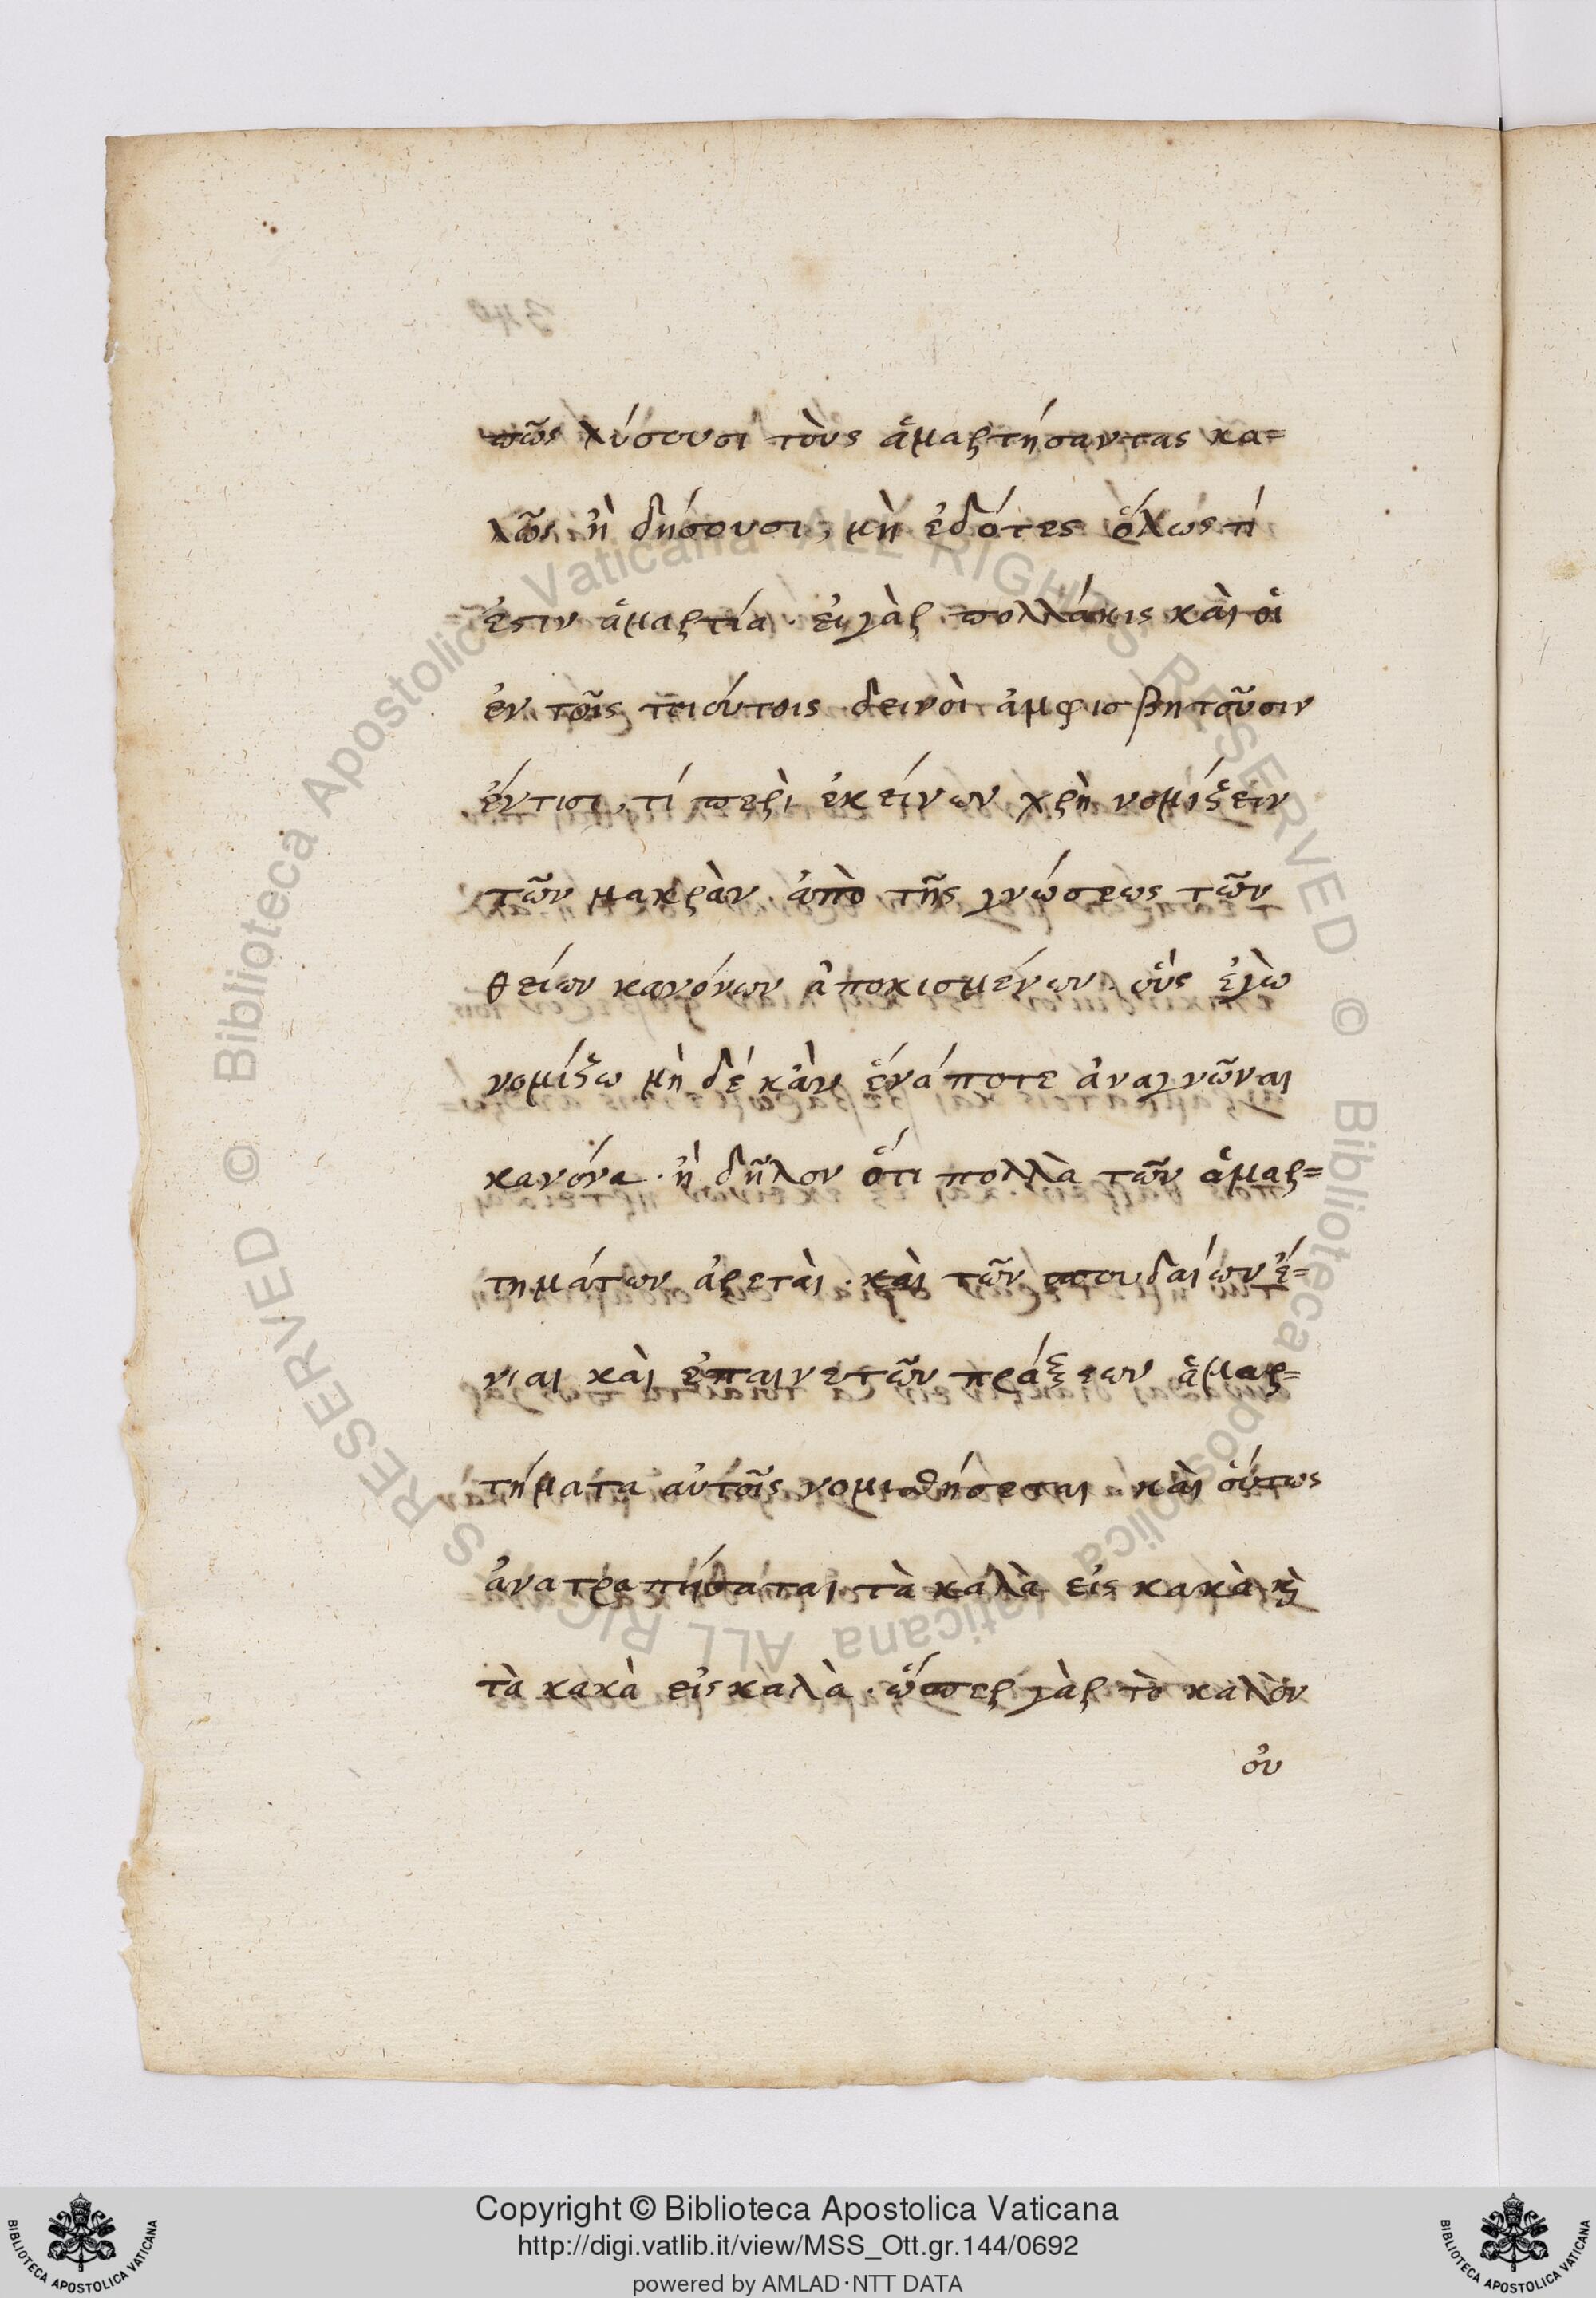 πῶς λύσουσι τοὺς ἁμαρτήσαντας κα=
λῶς ἢ δήσουσι, μὴ ἐδότες ὅλως τί
ἐστιν ἁμαρτία· εἰ γὰρ πολλάκις καὶ οἱ
ἐν τοῖς τοιούτοις δεινοὶ ἀμφισβητοῦσιν
ἔντισι, τί περὶ ἐκείνων χρὴ νομίζειν
τῶν μακρὰν ἀπὸ τῆς γνώσεως τῶν
θείων κανόνων ἀποκισμένων· οὓς ἐγὼ
νομίζω μὴ δέ κἂν ἕνά ποτε ἀναγνῶναι
κανόνα· ἢ δῆλον ὅτι πολλὰ τῶν ἁμαρ=
τημάτων ἀρεταὶ· καὶ τῶν σπουδαίων ἔ=
νιαι καὶ ἐπαινετῶν πράξεων ἁμαρ=
τήματα αὐτοῖς νομισθήσεται· καὶ οὕτως
ἀνατραπήσαται τὰ καλὰ εἰς κακὰ καὶ
τὰ κακὰ εἰς καλὰ· ὥσπερ γὰρ τὸ καλὸν
οὐ
Copyright © Biblioteca Apostolica Vaticana
http://digi.vatlib.it/view/MSS_Ott.gr.144/0692
powered by AMLAD·NTT DATA
BIBLIOTECA APOSTOLICA VATICANA
BIBLIOTECA APOSTOLICA VATICANA